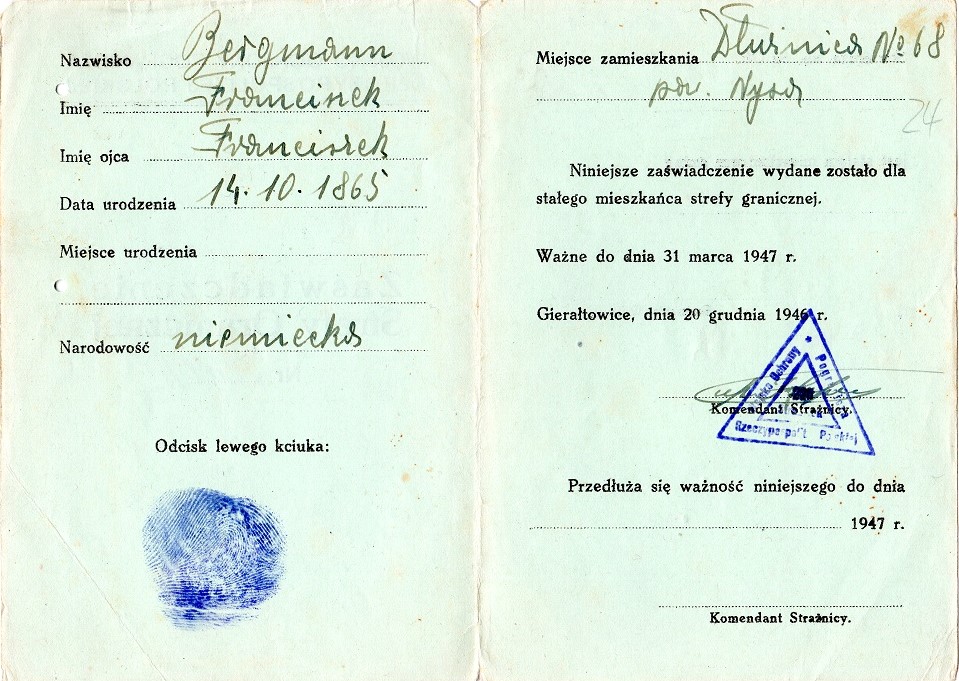 Nazwisko Bergmann
Imię Franciszek
Imię ojca Franciszek
Data urodzenia 14. 10. 1865
Miejsce urodzenia
Narodowość niemiecka
Odcisk lewego kciuka:
Miejsce zamieszkania Dłużnica № 68
pow. Nysa
24
Niniejsze zaświadczenie wydane zostało dla
stałego mieszkańca strefy granicznej.
Ważne do dnia 31 marca 1947 r.
Gierałtowice, dnia 20 grudnia 1946 r.
Komendant Strażnicy.
Ochrony
Rzeczypospolit Polskiej
Przedłuża się ważność niniejszego do dnia
1947 r.
Komendant Strażnicy.